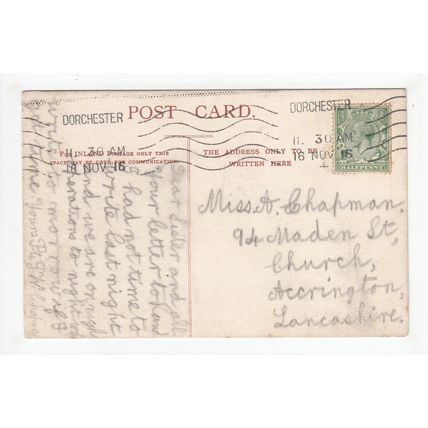 POST CARD.
DORCHESTER
11. 30 AM
16 NOV 16
DORCHESTER
11. 30 AM
16 NOV 16
HALFPENNY
FOR INLAND POSTAGE ONLY THIS
SPACE MAY BE USED FOR COMMUNICATION
THE ADDRESS ONLY TO BE
WRITTEN HERE
Dear Sister and all
your letter to hand
I had not time to
write last night
and we are on night
operations to night
Miss A. Chapman.
94 Maden St,
Church,
Accrington,
Lancashire.